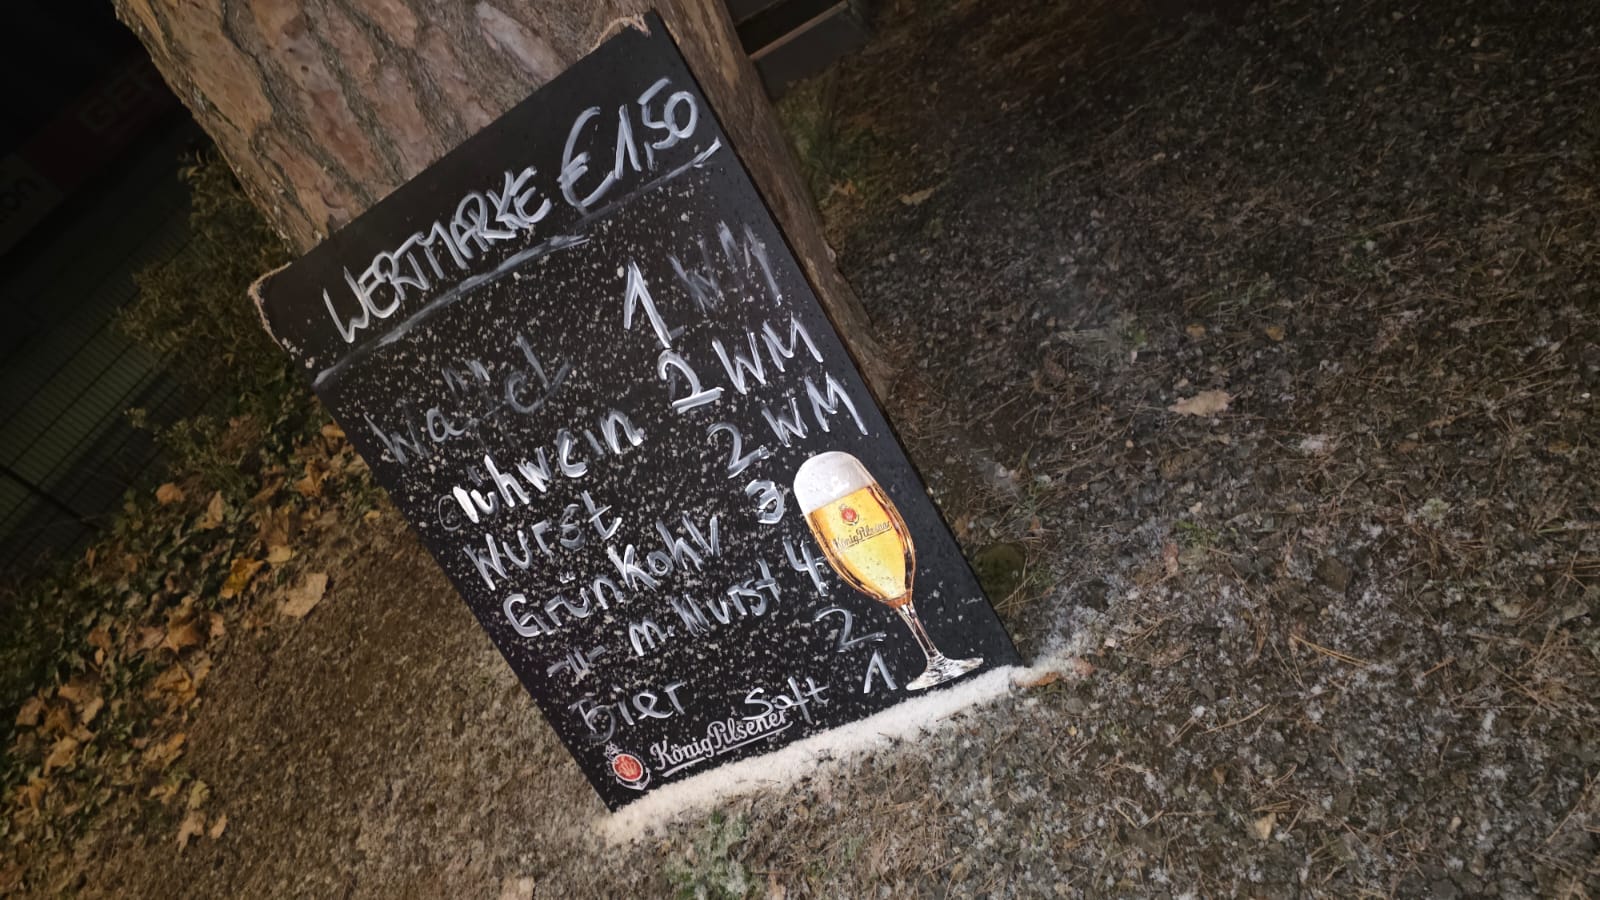 WERTMARKE €1,50
Waffel 1 WM
Glühwein 2 WM
Wurst 2 WM
Grünkohl 3
-||- m. Wurst 4
Bier 2
Saft 1
König Pilsener
König Pilsener